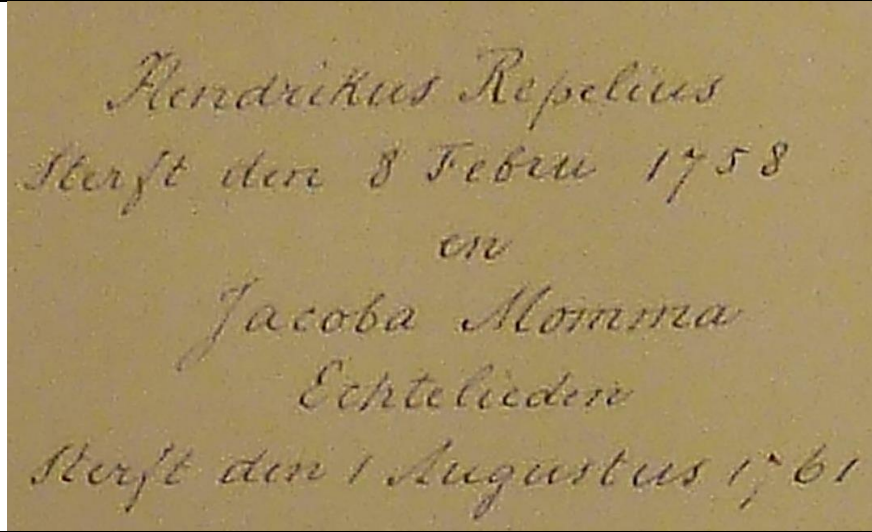 Hendrikus Repelius
Sterft den 8 Febru 1758
en
Jacoba Momma
Echtelieden
Sterft den 1 Augustus 1761